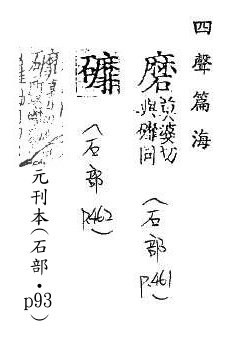 四聲篇海
磨 莫婆切 與䃺同 (石部 p.461)
䃺 (石部 p.462)
元刊本(石部·p93)